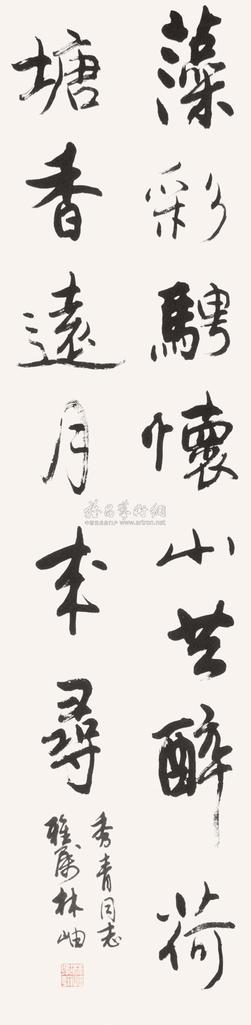 藻彩騁懷山共醉荷
塘香遠月来尋
秀青同志
雅屬林岫
雅昌藝術網
www.artron.net